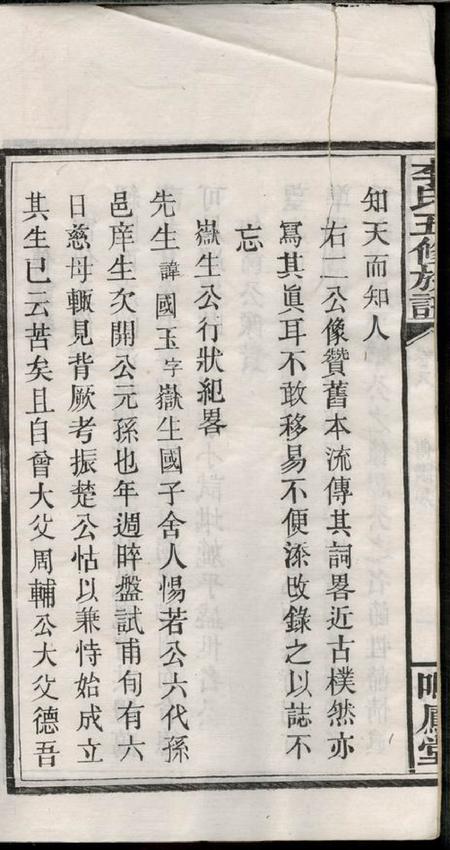 李氏五修族譜
知天而知人
右二公像贊舊本流傳其詞畧近古樸然亦
寫其眞耳不敢移易不便添改錄之以誌不
忘
嶽生公行狀紀畧
先生諱國玉字嶽生國子舍人惕若公六代孫
邑庠生次開公元孫也年週晬盤試甫旬有六
日慈母輒見背厥考振楚公怙以兼恃始成立
其生已云苦矣且自曾大父周輔公大父德吾
鳳堂